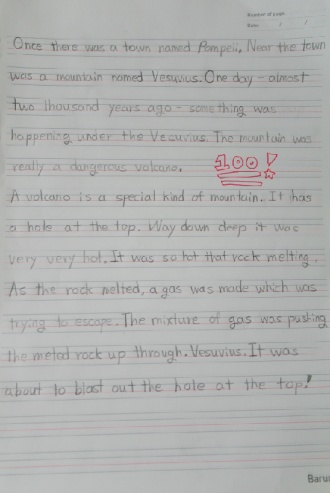 Number of page
Date / /
Once there was a town named Pompeii. Near the town
was a mountain named Vesuvius. One day - almost
two thousand years ago - something was
happening under the Vesuvius. The mountain was
really a dangerous volcano. 100!
A volcano is a special kind of mountain. It has
a hole at the top. Way down deep it was
very very hot. It was so hot that rock melting.
As the rock melted, a gas was made which was
trying to escape. The mixture of gas was pushing
the meted rock up through. Vesuvius. It was
about to blast out the hole at the top!